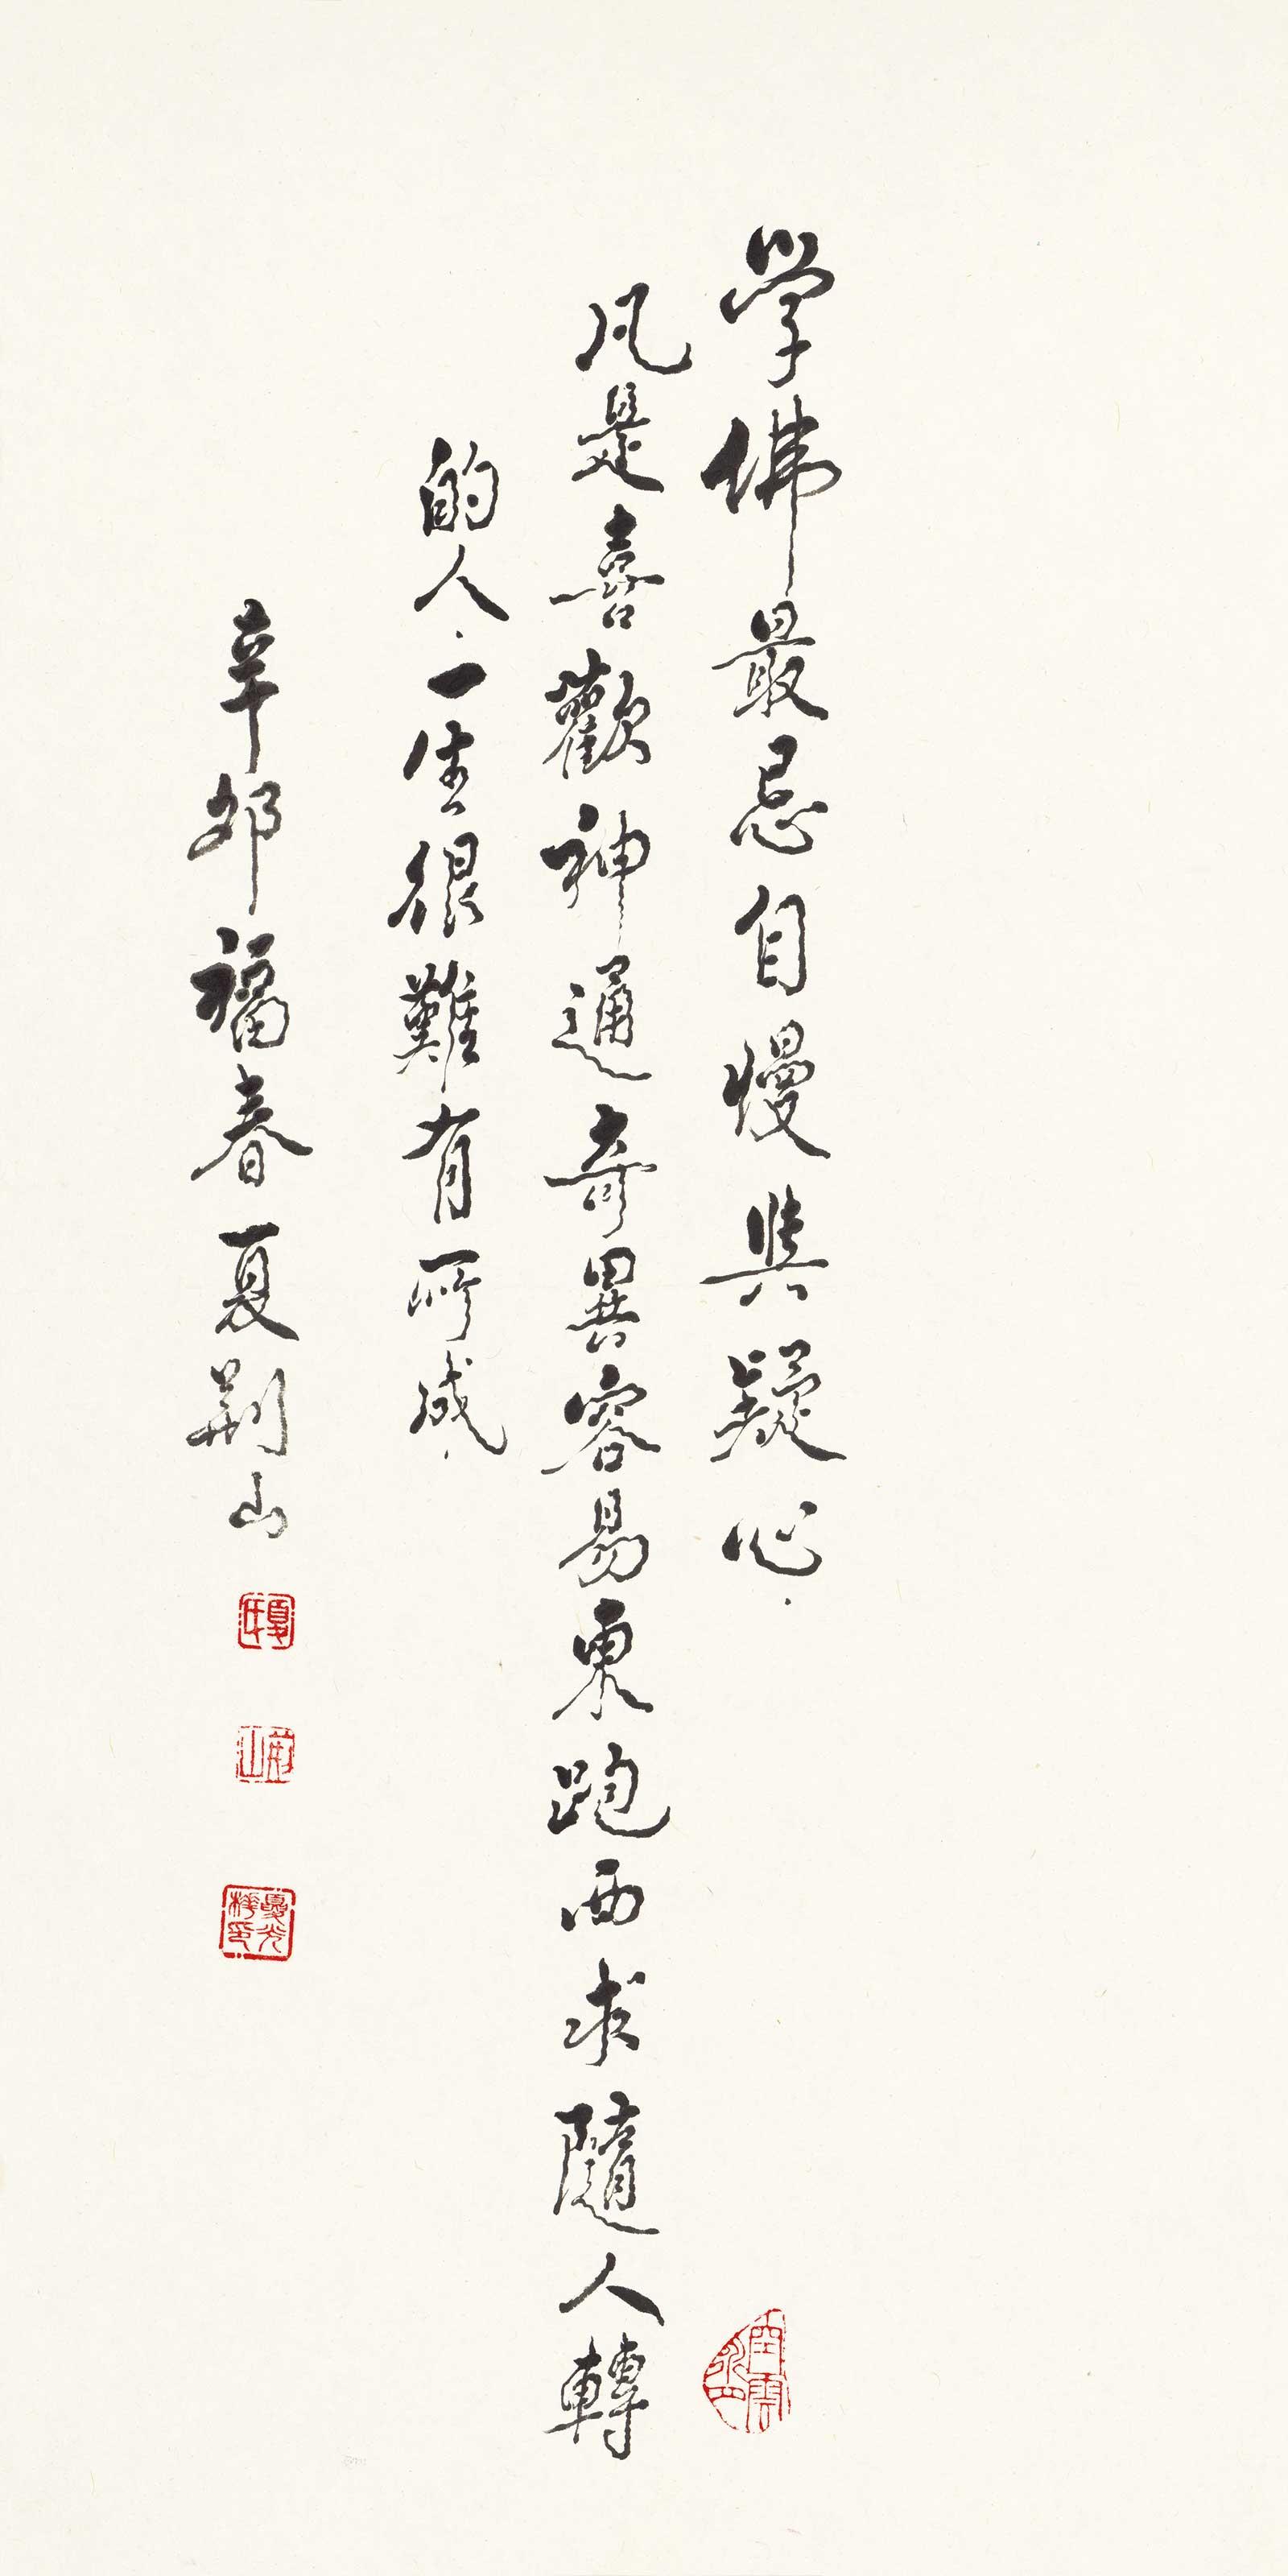 學佛最忌自慢與疑心.
凡是喜歡神通奇異容易東跑西求隨人轉
的人.一生很難有所成.
辛卯福春 夏荆山
夏氏
荊山